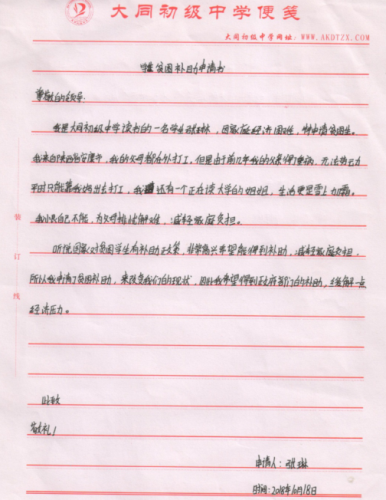 大同初级中学便笺
大同初级中学网址：WWW.AKDTZX.COM
贫困补助申请书
尊敬的领导：
我是大同初级中学读书的一名学生张琳，因家庭经济困难，特申请贫困生。
我来自农村，我的父母都在外打工，但是由于前几年我的父亲得重病，无法劳力
平时只能靠我妈出去打工，我还有一个正在读大学的姐姐，生活更是雪上加霜。
我小自己不能为父母排忧解难，减轻家庭负担。
听说国家对贫困学生有补助政策，非常高兴希望能得到补助，减轻家庭负担，
所以我申请了贫困补助，来改变我们的现状，因此我希望得到政府部门的补助，缓解一点
经济压力。
此致
敬礼！
申请人：张琳
时间：2018年10月18日
装订线